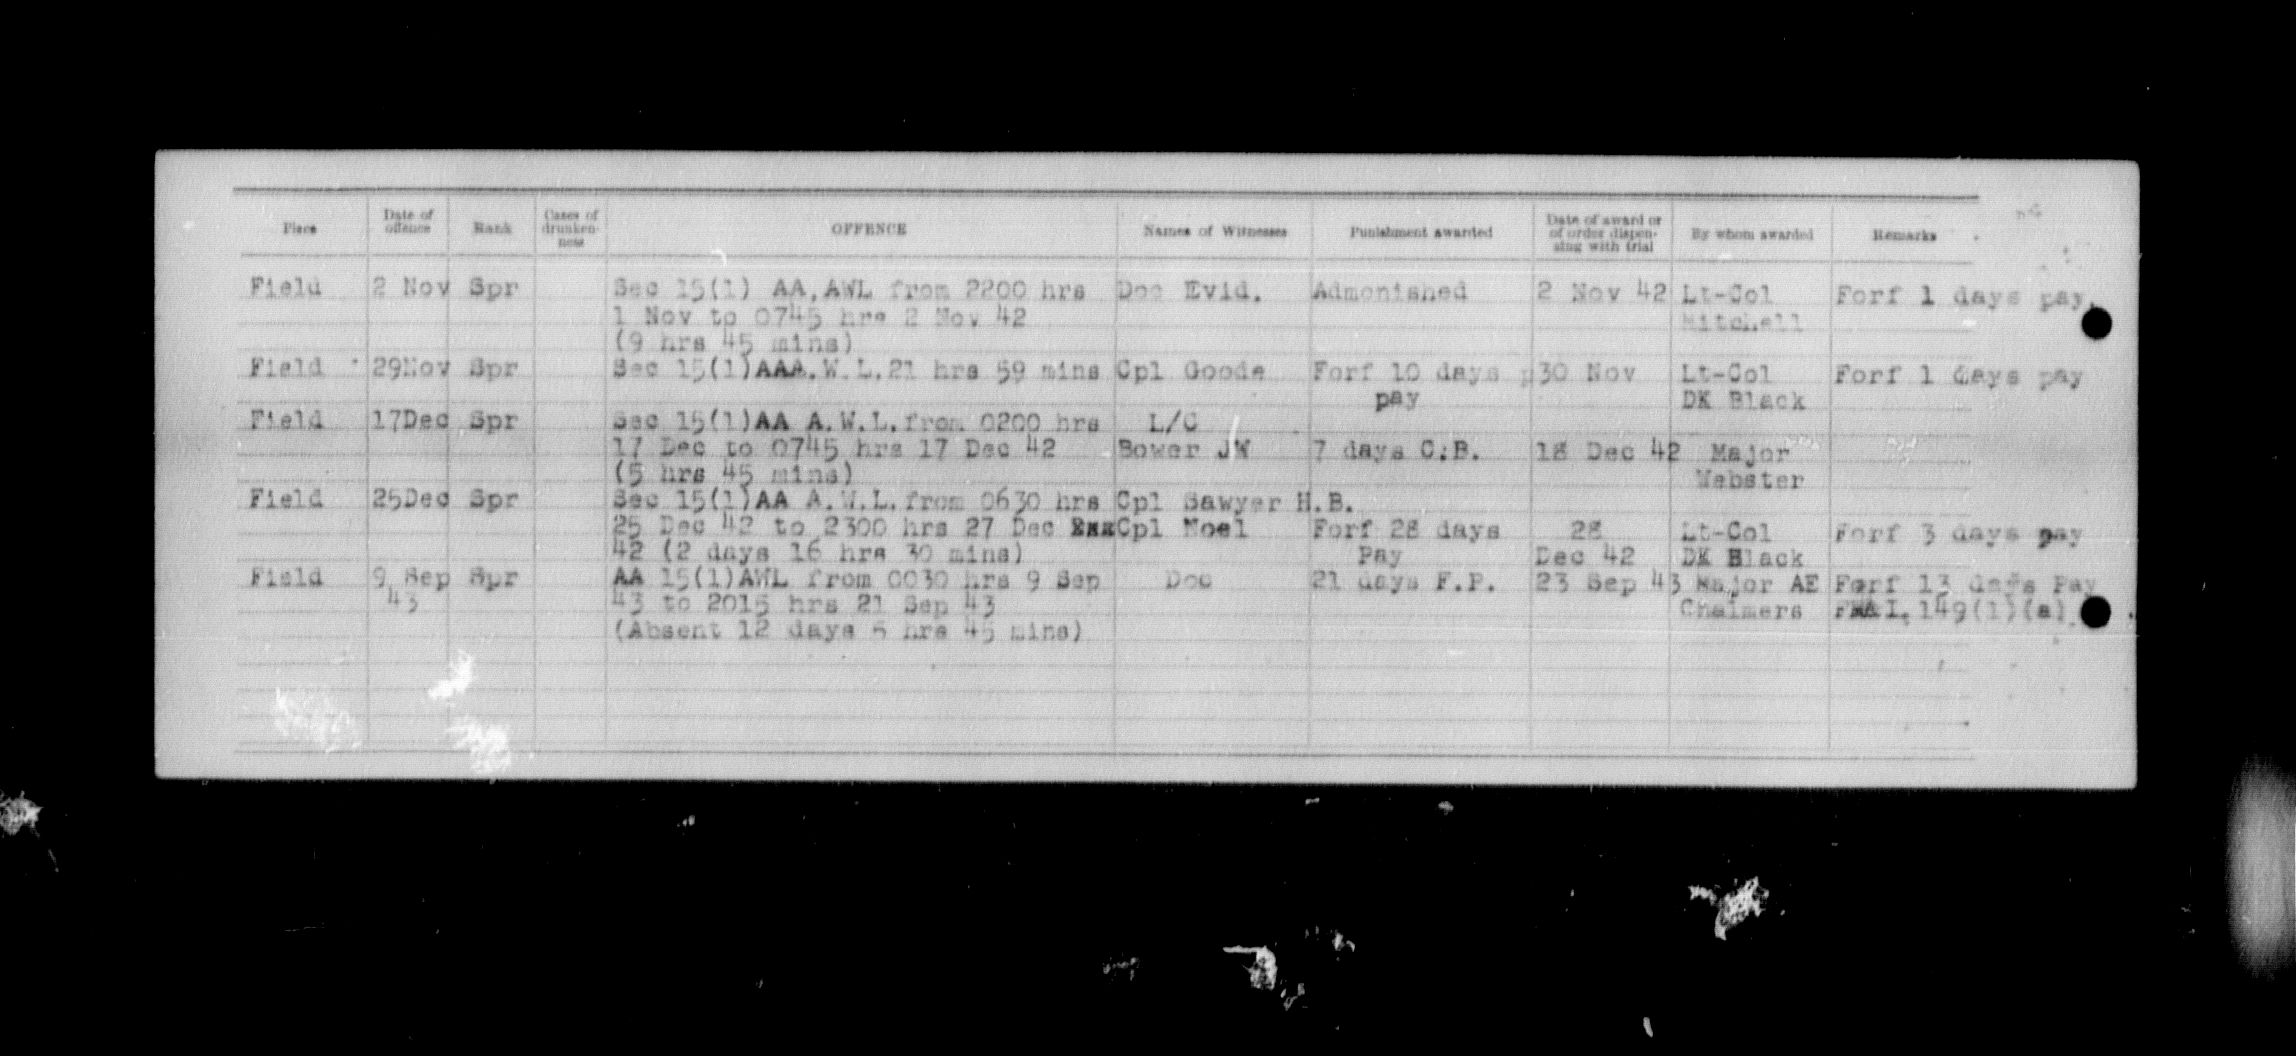 Place Date of offence Rank Cases of drunken-ness OFFENCE Names of Witnesses Punishment awarded Date of award or of order dispen-sing with trial By whom awarded Remarks
Field 2 Nov Spr Sec 15(1) AA, AWL from 2200 hrs Doc Evid. Admonished 2 Nov 42 Lt-Col Forf 1 days pay.
1 Nov to 0745 hrs 2 Nov 42 Mitchell
(9 hrs 45 mins)
Field 29Nov Spr Sec 15(1)AAA.W.L.21 hrs 59 mins Cpl Goode Forf 10 days p 30 Nov Lt-Col Forf 1 days pay
pay DK Black
Field 17Dec Spr Sec 15(1)AA A.W.L.from 0200 hrs L/C
17 Dec to 0745 hrs 17 Dec 42 Bower JW 7 days C.B. 18 Dec 42 Major
(5 hrs 45 mins) Webster
Field 25Dec Spr Sec 15(1)AA A.W.L.from 0630 hrs Cpl Sawyer H.B.
25 Dec 42 to 2300 hrs 27 Dec Cpl Noel Forf 28 days 28 Lt-Col Forf 3 days pay
42 (2 days 16 hrs 30 mins) Pay Dec 42 DK Black
Field 9 Sep Spr AA 15(1)AWL from 0030 hrs 9 Sep Doc 21 days F.P. 23 Sep 43 Major AE Forf 13 days Pay
43 43 to 2015 hrs 21 Sep 43 Chalmers 149(1)(a)
(Absent 12 days 5 hrs 45 mins)